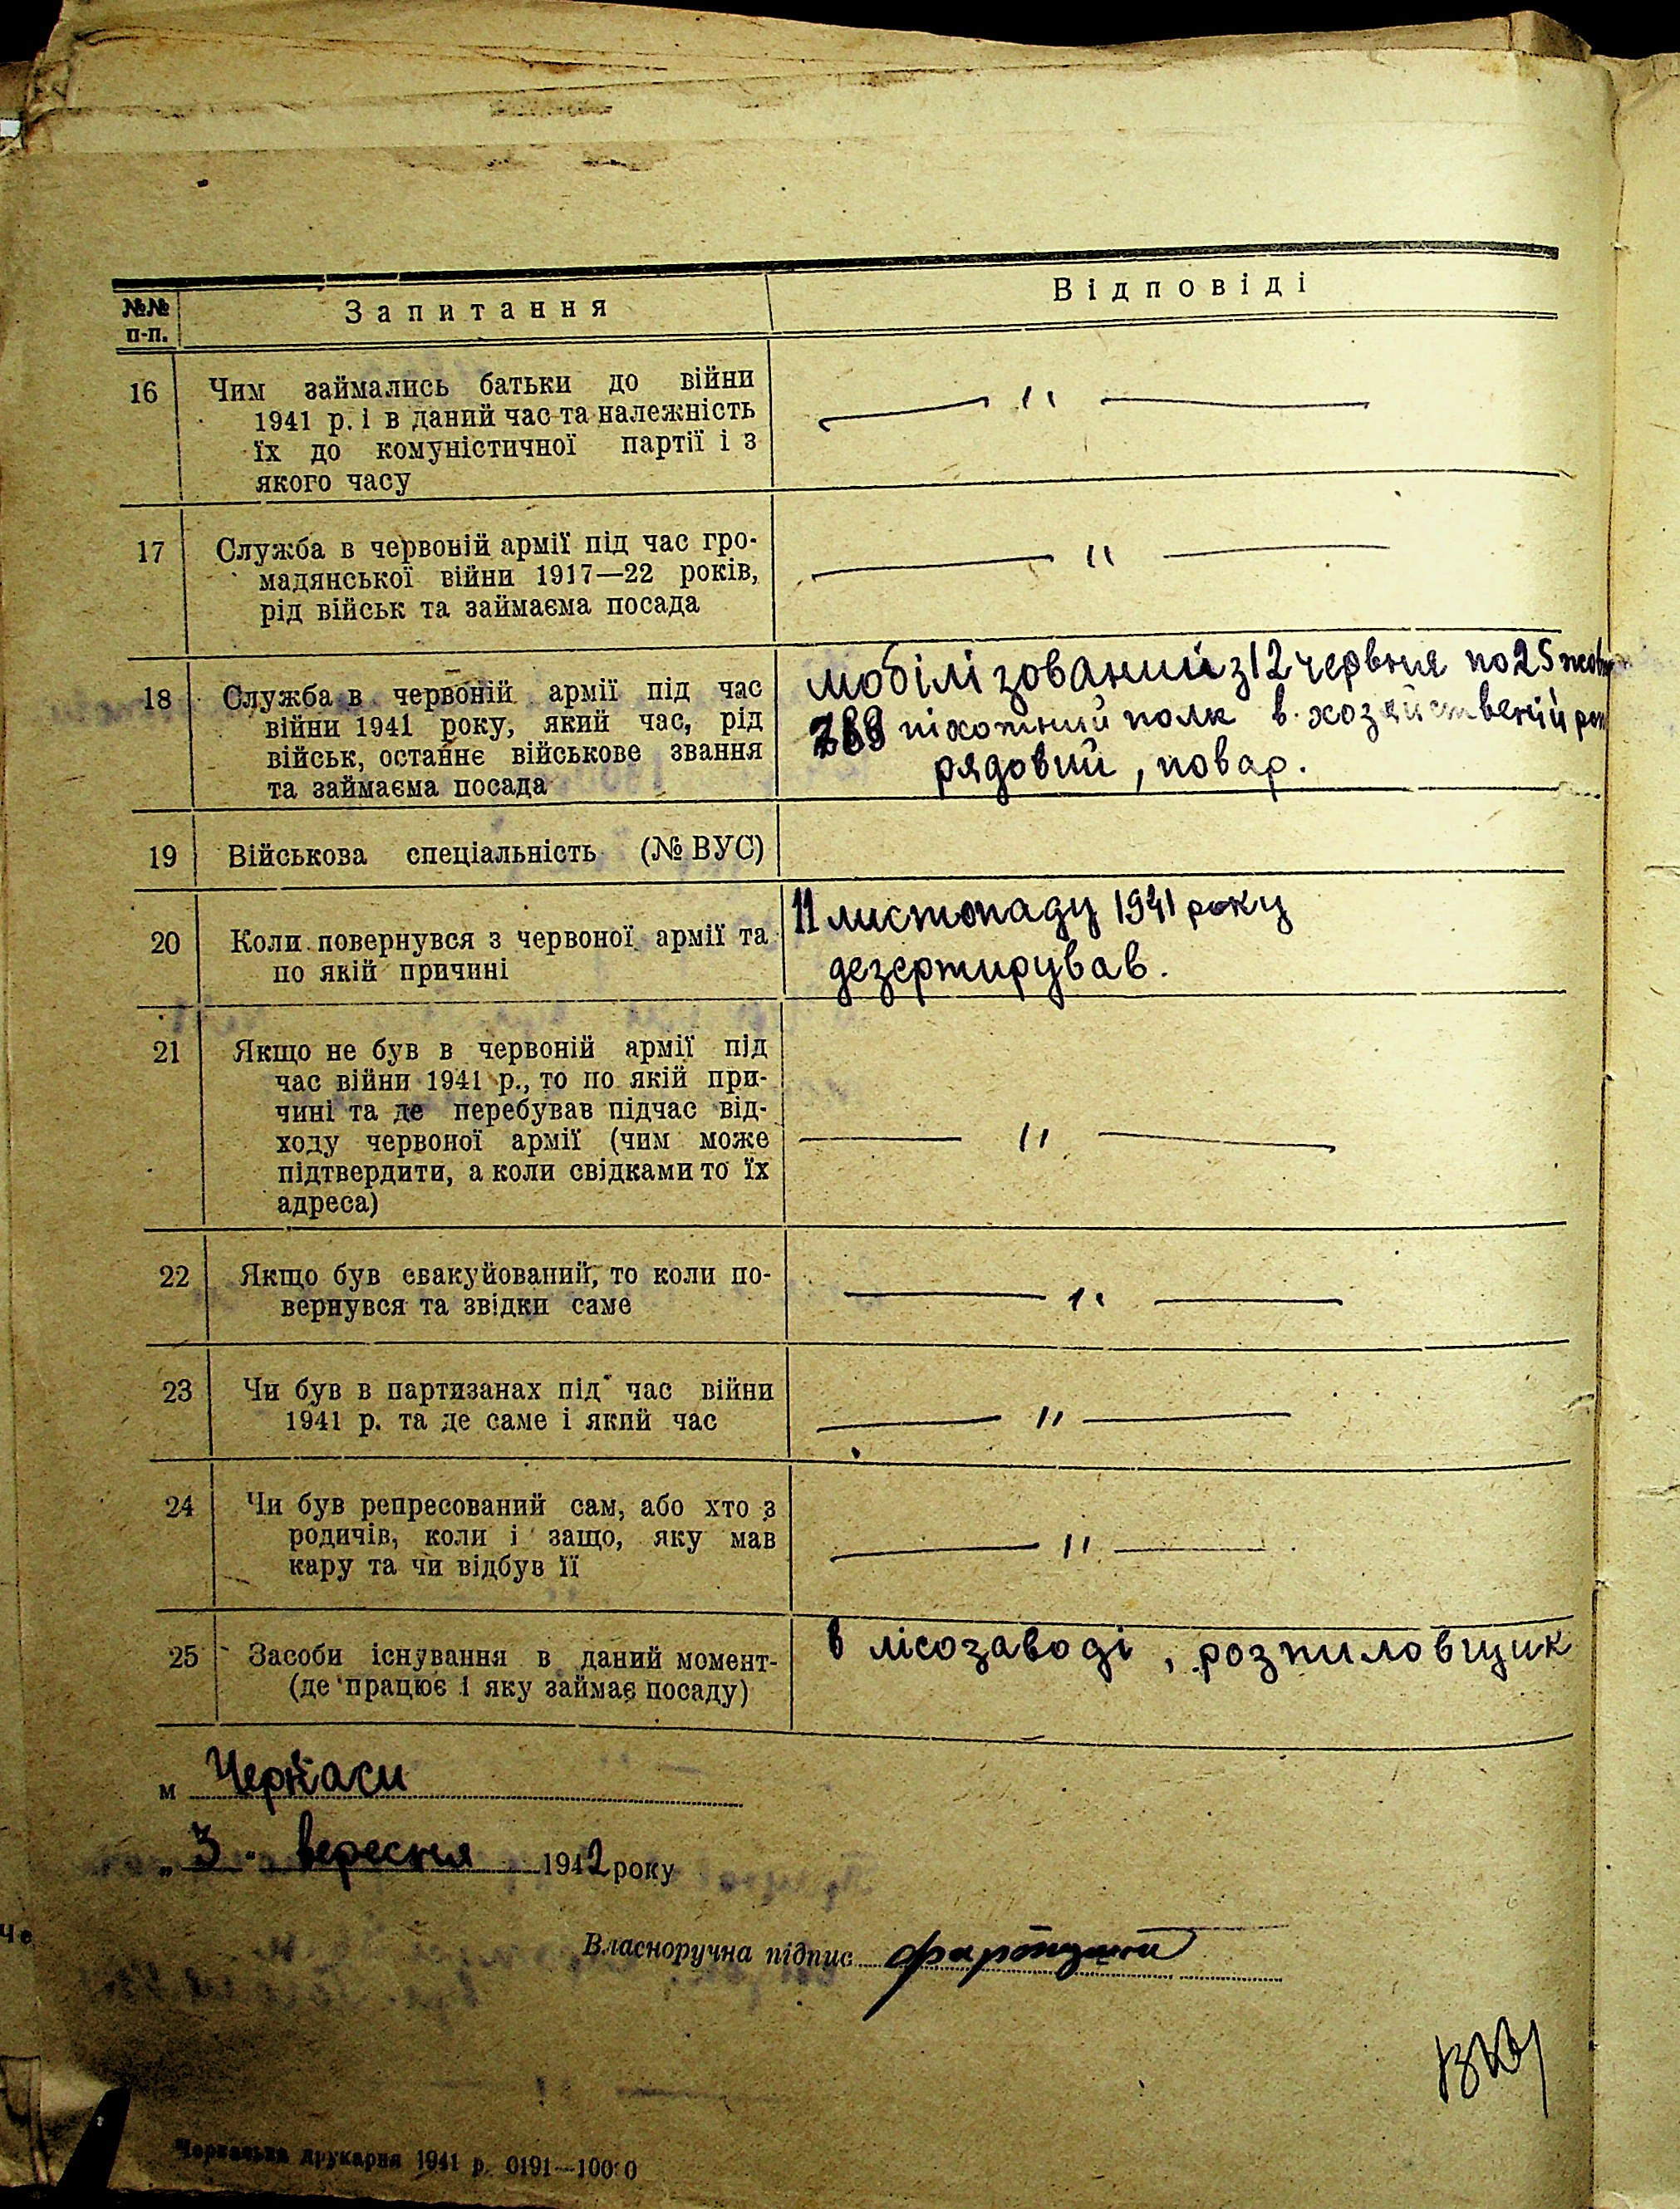 №№ п-п.
Запитання
Відповіді
16
Чим займались батьки до війни
1941 р. і в даний час та належність
їх до комуністичної партії і з
якого часу
— " —
17
Служба в червоній армії під час гро-
мадянської війни 1917—22 років,
рід військ та займаєма посада
— " —
18
Служба в червоній армії під час
війни 1941 року, який час, рід
військ, останнє військове звання
та займаєма посада
мобілізований з 12 червня по 25
піхотний полк в хозяйственій
рядовий, повар.
19
Військова спеціальність (№ ВУС)
20
Коли повернувся з червоної армії та
по якій причині
11 листопаду 1941 року
дезертирував.
21
Якщо не був в червоній армії під
час війни 1941 р., то по якій при-
чині та де перебував підчас від-
ходу червоної армії (чим може
підтвердити, а коли свідками то їх
адреса)
— " —
22
Якщо був евакуйований, то коли по-
вернувся та звідки саме
— " —
23
Чи був в партизанах під час війни
1941 р. та де саме і який час
— " —
24
Чи був репресований сам, або хто з
родичів, коли і защо, яку мав
кару та чи відбув її
— " —
25
Засоби існування в даний момент-
(де працює і яку займає посаду)
в лісозаводі, розпиловщик
м Черкаси
„ 3 " вересня 1942 року
Власноручна підпис
Черкаська друкарня 1941 р. 0191—10000